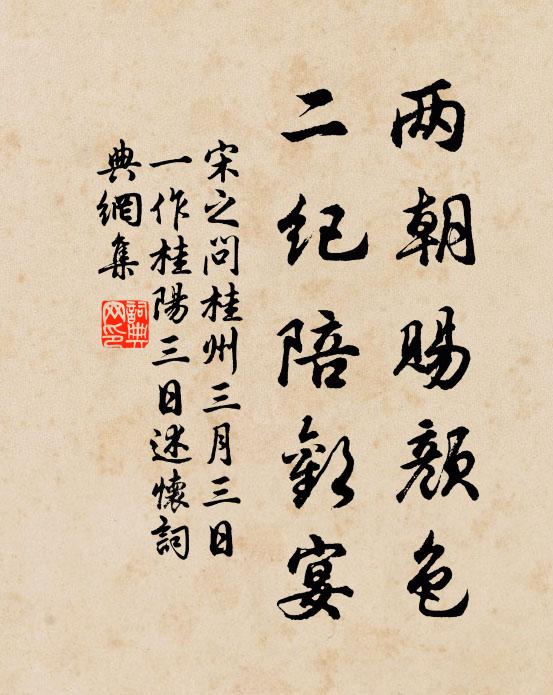 两朝赐颜色
二纪陪欢宴
宋之问桂州三月三日
一作桂陽三日述懷詞
典網集
詞典網印